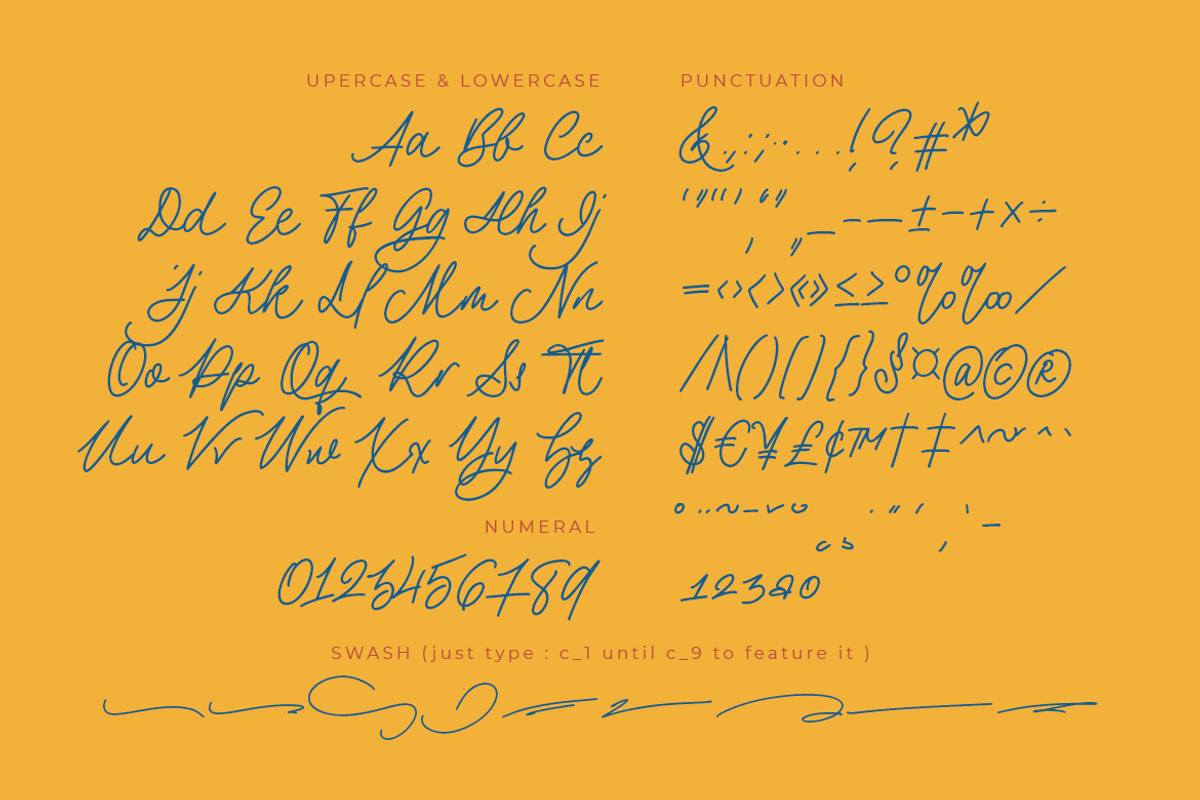 UPERCASE & LOWERCASE
Aa Bb Cc
Dd Ee Ff Gg Hh Ii
Jj Kk Ll Mm Nn
Oo Pp Qq Rr Ss Tt
Uu Vv Ww Xx Yy Zz
NUMERAL
0123456789
PUNCTUATION
& . , : ; · · . . . ! ? # *
' " ‘ ’ “ ” ‚ „ _ – — ± − + × ÷
= ‹ › < > « » ≤ ≥ ° % ‰ /
/ \ ( ) [ ] { } § ¤ @ © ®
$ € ¥ £ ¢ ™ † ‡ ^ ~ ˆ `
1 2 3 a o
SWASH (just type : c_1 until c_9 to feature it )